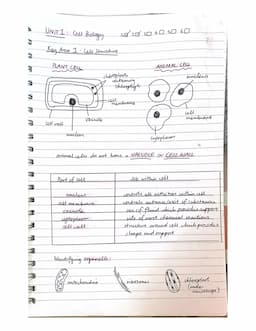 UNIT 1: Cell Biology
Key Area 1 - Cell Structure
PLANT CELL
ANIMAL CELL
chloroplasts
containing
chlorophyll
nucleus
cell
membrane
cell
membrane
cell wall
vacuole
nucleus
cytoplasm
animal cells do not have a VACUOLE or CELL WALL
Part of cell
Job within cell
nucleus
controls all activities within cell
cell membrane
controls entrance/exit of substances
vacuole
sac of fluid which provides support
cytoplasm
site of most chemical reactions
cell wall
structure around cell which provides
shape and support
Identifying organelles:
mitochondria
ribosomes
chloroplast
(under
microscope)